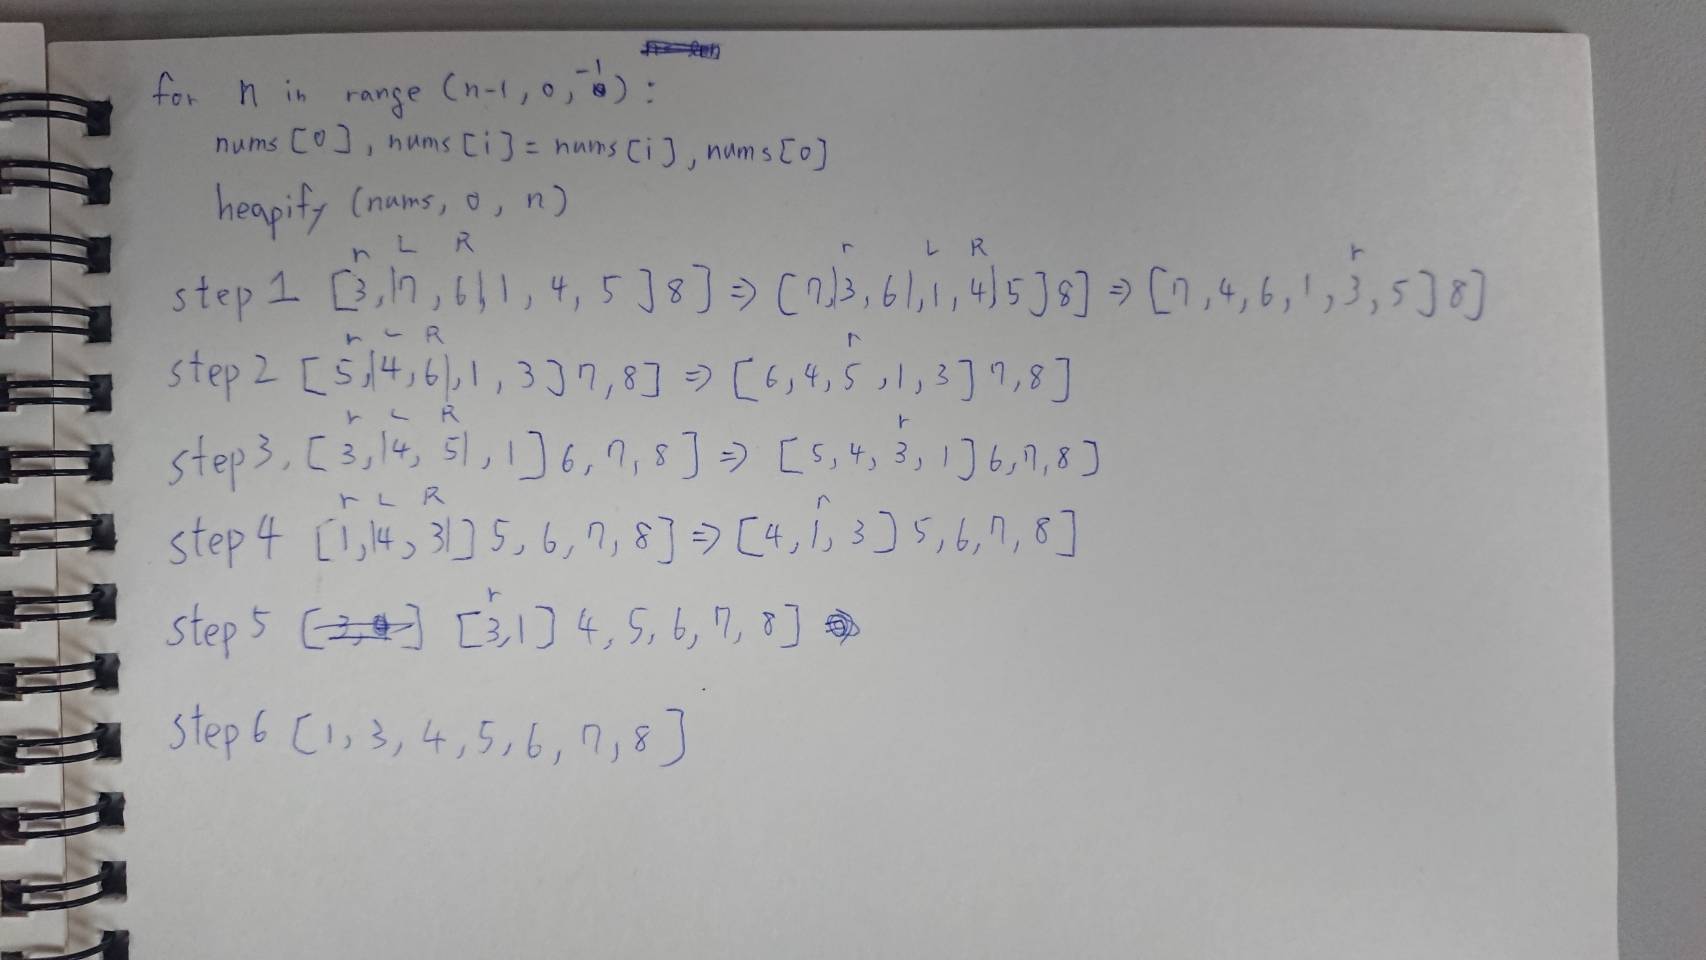 for n in range (n-1, 0, -1):
nums [0], nums [i] = nums [i], nums [0]
heapify (nums, 0, n)
r L R r L R r
step 1 [3,|7, 6|, 1, 4, 5] 8] ⇒ [7,|3, 6|, 1, 4|5] 8] ⇒ [7, 4, 6, 1, 3, 5] 8]
r L R r
step 2 [5,|4, 6|, 1, 3] 7, 8] ⇒ [6, 4, 5, 1, 3] 7, 8]
r L R r
step 3, [3,|4, 5|, 1] 6, 7, 8] ⇒ [5, 4, 3, 1] 6, 7, 8]
r L R r
step 4 [1,|4, 3|] 5, 6, 7, 8] ⇒ [4, 1, 3] 5, 6, 7, 8]
r
step 5 [3,1] 4, 5, 6, 7, 8]
step 6 [1, 3, 4, 5, 6, 7, 8]